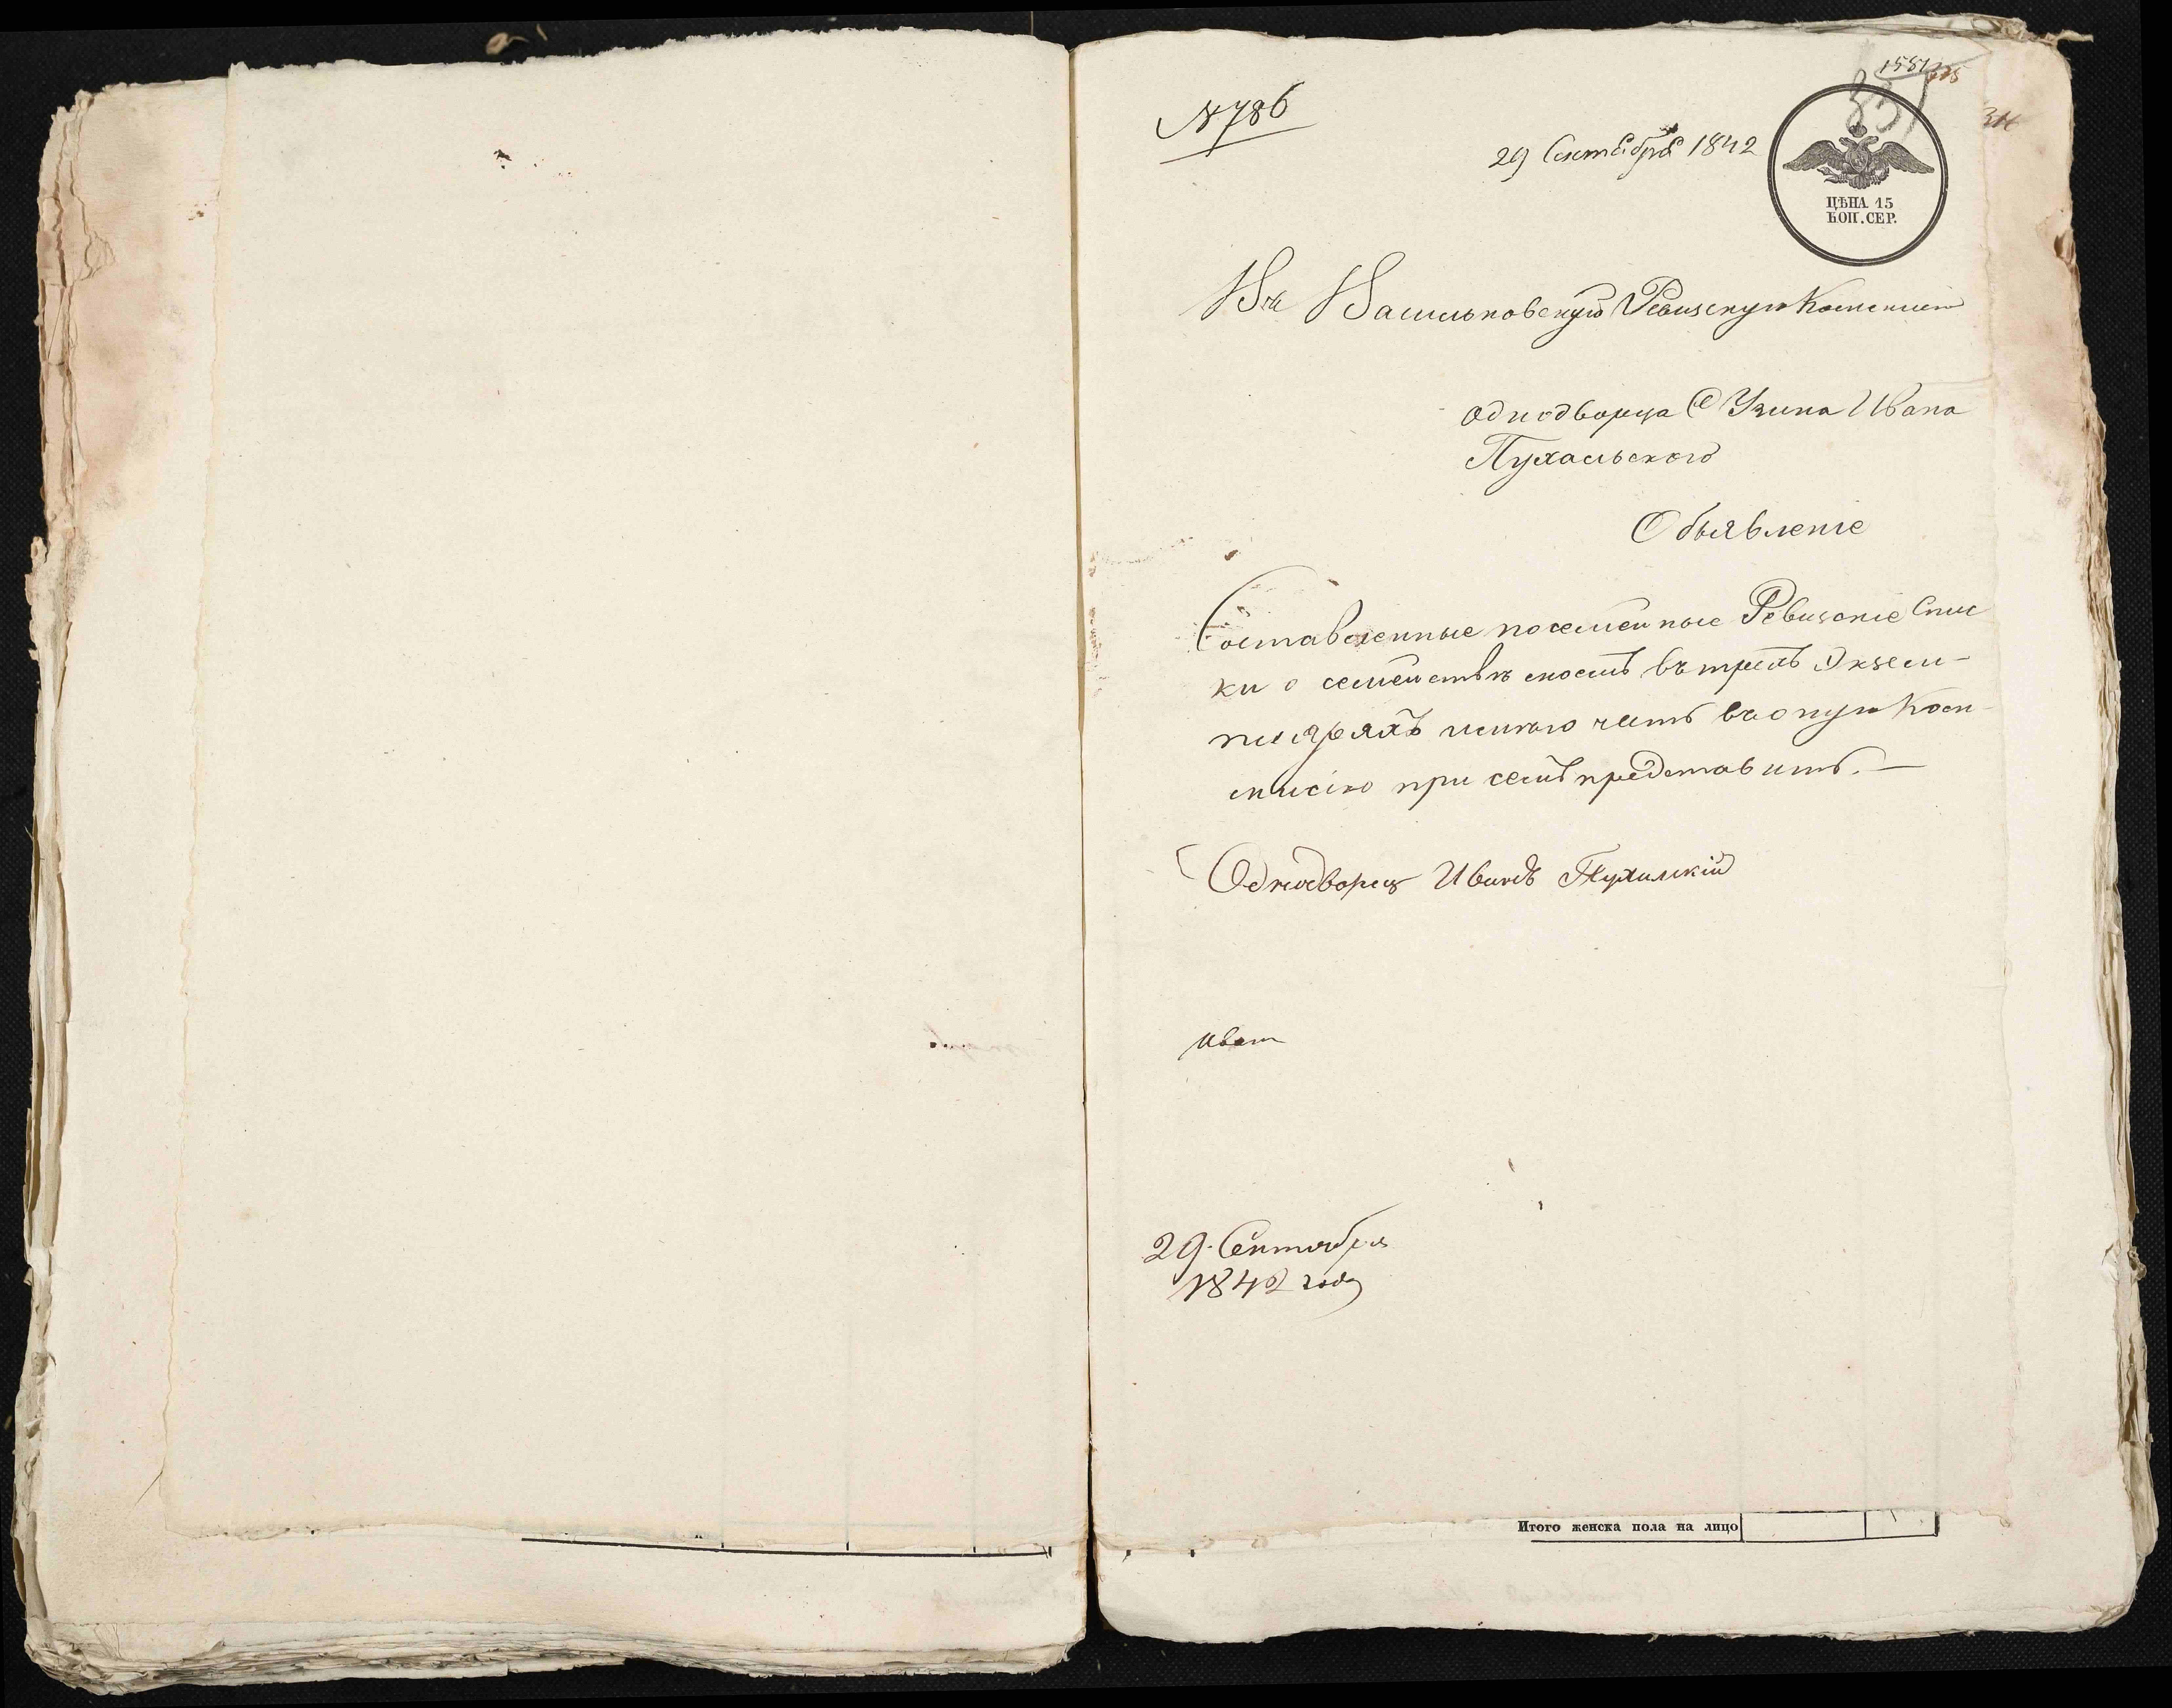 № 786
29 Сентября 1842
ЦѢНА 15
КОП. СЕР.
Въ Васильковскую Ревизскую Комисию
Однодворца С Узина Ивана
Пухальского
Объявленіе
Составленные посемейные Ревизскіе Спис
ки о семействѣ моемъ въ трехъ Экзем-
плярахъ имѣю честь въ оную Ком-
мисію при семъ представить. —
Однодворец Иванъ Пухалскій
29. Сентября
1842 года
Итого женска пола на лицо